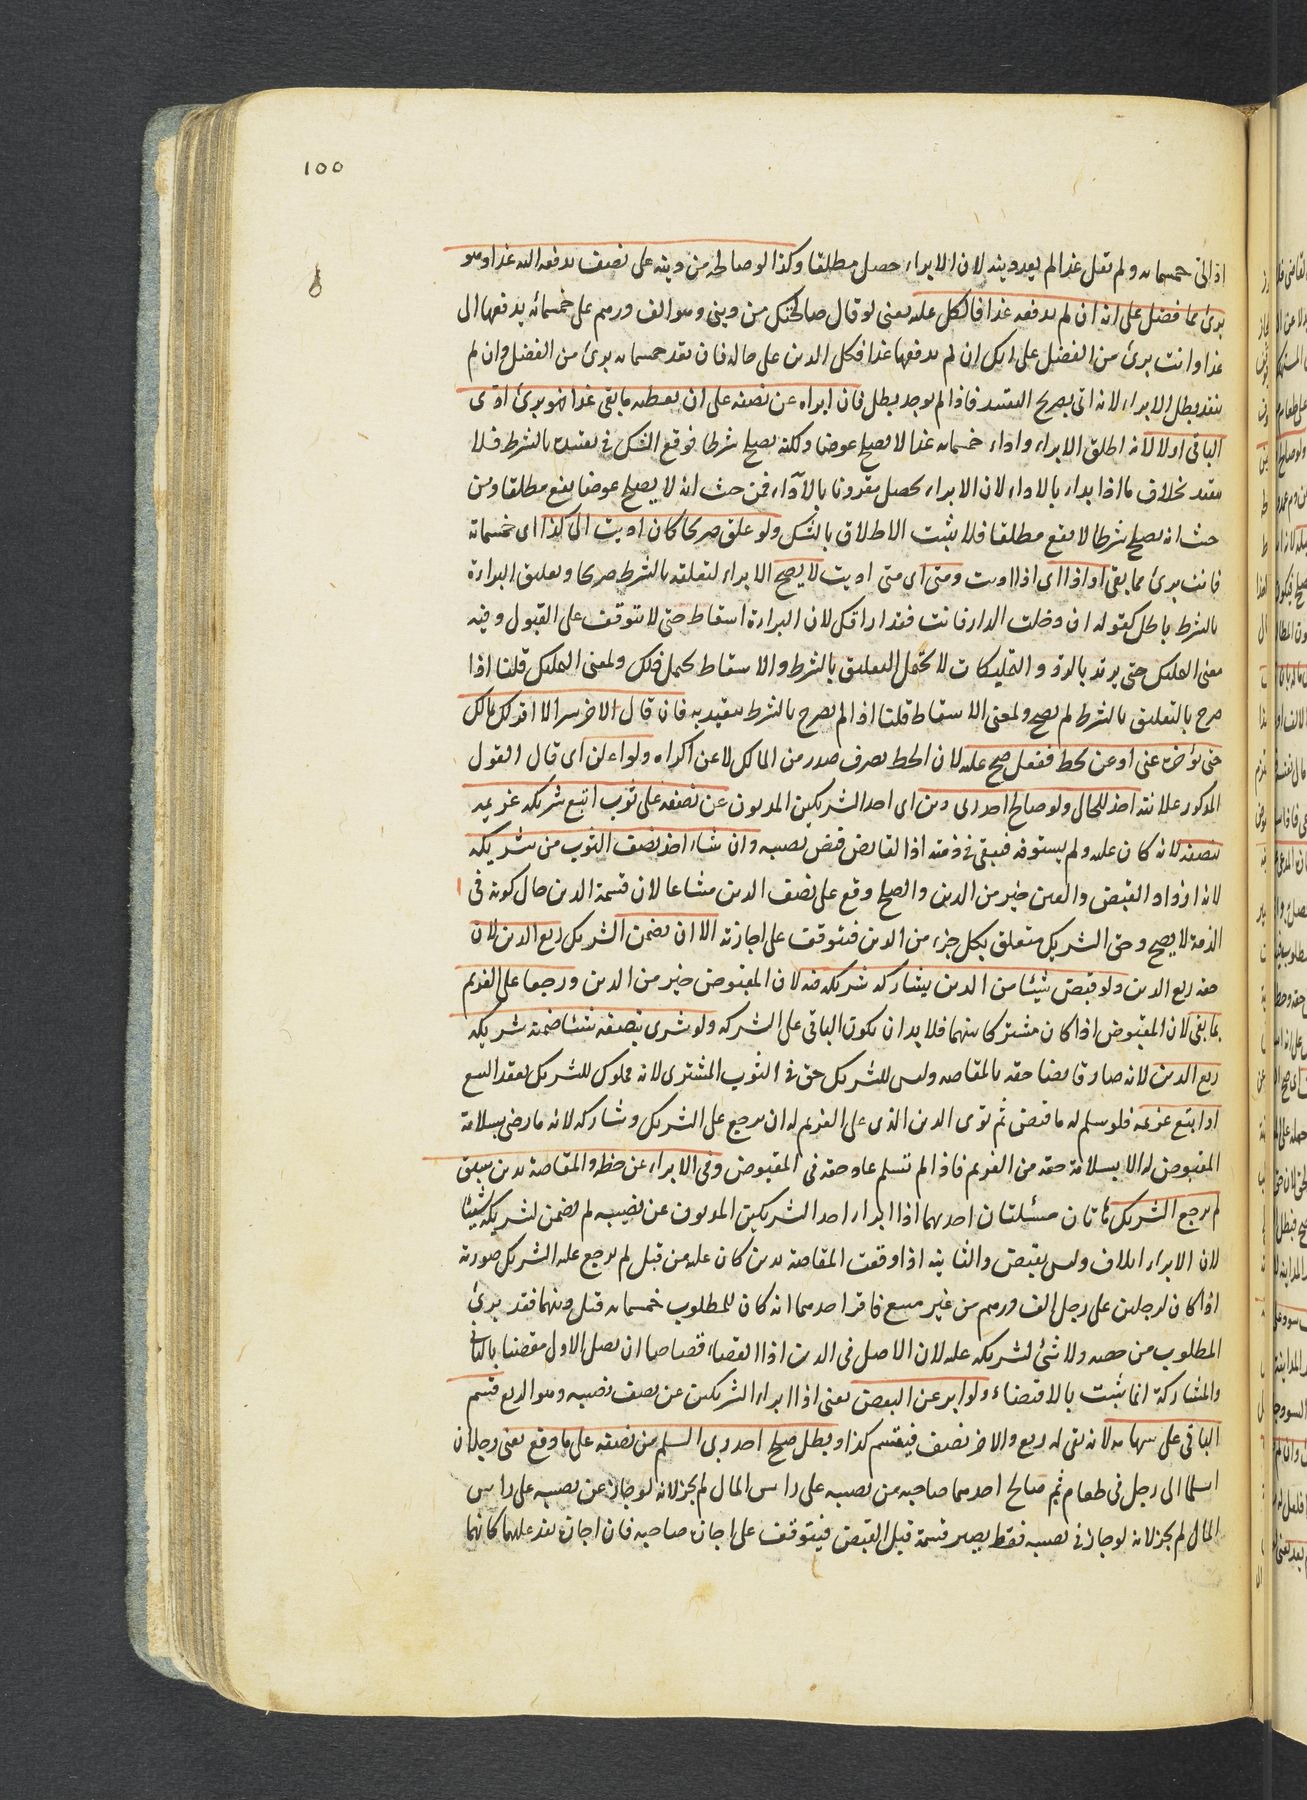 ١٥٥
اد الىّ خمسمائه ولم تقل غدا لم يعد دينه لان الابراء حصل مطلقا وكذا لو صالحه من دينه على نصف يدفعه اليه غدا وهو
برئ مما فضل على انه ان لم يدفعه غدا فالكل عليه يعنى لو قال صالحتك من دينى وهو الف درهم على خمسمائه يدفعها الى
غدا وانت برئ من الفضل على انك ان لم تدفعها غدا فكل الدين على حاله فان نقد خمسمائه برئ من الفضل وان لم
ينقد بطل الابراء لانه اتى بصريح التقييد فاذا لم يوجد بطل فان ابراه عن نصفه على ان يعطيه ما بقى غدا فهو برئ ادى
الباقى اولا لانه اطلق الابراء واداء خمسمائه غدا لا يصلح عوضا ولكنه يصلح شرطا فوقع الشك فى تقييده بالشرط فلا
يتقيد بخلاف ما اذا بداء بالاداء لان الابراء يحصل مقرونا بالآداء فمن حيث انه لا يصلح عوضا يقع مطلقا ومن
حيث انه يصلح شرطا لا يقع مطلقا فلا يثبت الاطلاق بالشك ولو علق صريحا كان اديت الى كذا اى خمسمائة
فانت برئ مما بقى او اذا اى اذا اديت ومتى اى متى اديت لا يصح الابراء لتعلقه بالشرط صريحا وتعليق البراءة
بالشرط باطل كقوله ان دخلت الدار فانت فقد ابراتك لان البراءة اسقاط حتى لا تتوقف على القبول وفيه
معنى التمليك حتى يرتد بالردّ والتمليكات لا تحتمل التعليق بالشرط والاسقاط يحتمل ذلك ولمعنى التمليك قلنا اذا
صرح بالتعليق بالشرط لم يصح ولمعنى الاسقاط قلنا اذا لم يصرح بالشرط يتقيد به فان قال لاخر سرا لا اقر لك بمالك
حتى تؤخره عنى او عن تحط ففعل صح عليه لان الحط تصرف صدر من المالك لا عن اكراه ولو اعلن اى قال القول
المذكور علانية اخذ للحال ولو صالح احد ربى دين اى احد الشريكين المديون عن نصفه على ثوب اتبع شريكه غريمه
بنصفه لانه كان عليه ولم يستوفه فبقى فى ذمته اذ القابض قبض نصيبه وان شاء اخذ نصف الثوب من شريكه
لانه ازداد القبض والعين خير من الدين والصلح وقع على نصف الدين مشاعا لان قسمة الدين حال كونه فى
الذمة لا يصح وحق الشريك متعلق بكل جزء من الدين فيتوقف على اجازته الا ان يضمن الشريك ربع الدين لان
حقه ربع الدين ولو قبض شيئا من الدين يشاركه شريكه فيه لان المقبوض خير من الدين ورجعا على الغريم
بما بقى لان المقبوض اذا كان مشتركا بينهما فلا بد ان يكون الباقى على الشركه ولو شرى بنصفه شيئا ضمنه شريكه
ربع الدين لانه صار قابضا حقه بالمقاصه وليس للشريك حق فى الثوب المشترى لانه مملوك للشريك بعقد البيع
او اتبع غريمه فلو سلم له ما قبض ثم توى الدين الذى على الغريم له ان يرجع على الشريك وشاركه لانه ما رضى بسلامة
المقبوض له الا بسلامة حقه من الغريم فاذا لم تسلم عاد حقه فى المقبوض وفى الابراء عن حظه والمقاصة بدين سبق
لم يرجع الشريك هاتان مسئلتان احدهما اذا ابراء احد الشريكين المديون عن نصيبه لم يضمن لشريكه شيئا
لان الابراء اتلاف وليس بقبض والثانيه اذا وقعت المقاصة بدين كان عليه من قبل لم يرجع عليه الشريك صورته
اذا كان لرجلين على رجل الف درهم من غير مبيع فاقر احدهما انه كان للمطلوب خمسمائه قبل دينهما فقد برئ
المطلوب من حصه ولا شئ لشريكه عليه لان الاصل فى الدين اذا التقيا قصاصا ان يصل الاول مقضيا بالثانى
والمشاركة انما يثبت بالاقتضاء ولو ابرء عن البعض يعنى اذا ابراء الشريكين عن نصف نصيبه وهو الربع قسم
الباقى على سهامه لانه بقى له ربع والاخر نصف فيقسم كذا وبطل صلح احد ربى السلم من نصفه على ما دفع يعنى رجلان
اسلما الى رجل فى طعام ثم صالح احدهما صاحبه من نصيبه على راس المال لم يجز لانه لو جاز عن نصيبه على راس
المال لم يجز لانه لو جاز فى نصيبه فقط يصير قسمة قبل القبض فيتوقف على اجازة صاحبه فان اجاز نفذ عليهما كانهما